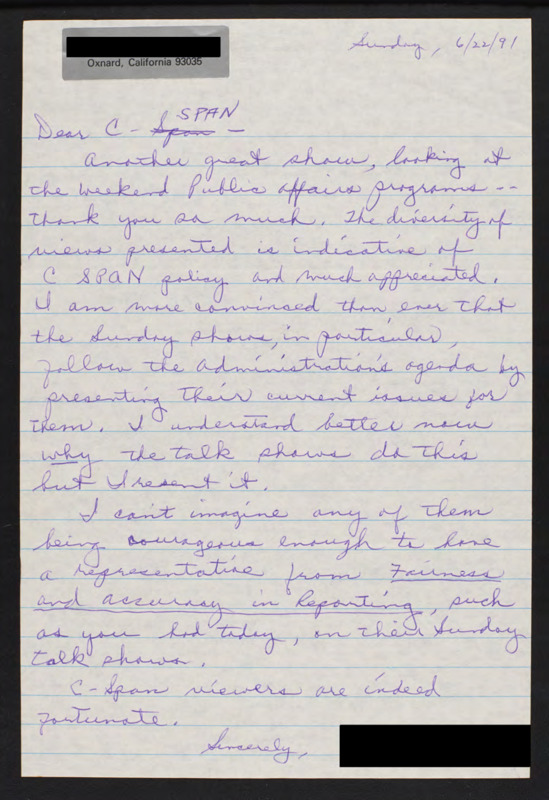 Oxnard, California 93035
Sunday, 6/22/91
Dear C- Span SPAN -
Another great show, looking at
the weekend Public affairs programs --
thank you so much. The diversity of
views presented is indicative of
C SPAN policy and much appreciated.
I am more convinced than ever that
the Sunday shows, in particular,
follow the administration's agenda by
presenting their current issues for
them. I understand better now
why the talk shows do this
but I resent it.
I can't imagine any of them
being courageous enough to have
a representative from Fairness
and accuracy in Reporting, such
as you had today, on their Sunday
talk shows.
C-Span viewers are indeed
fortunate.
Sincerely,